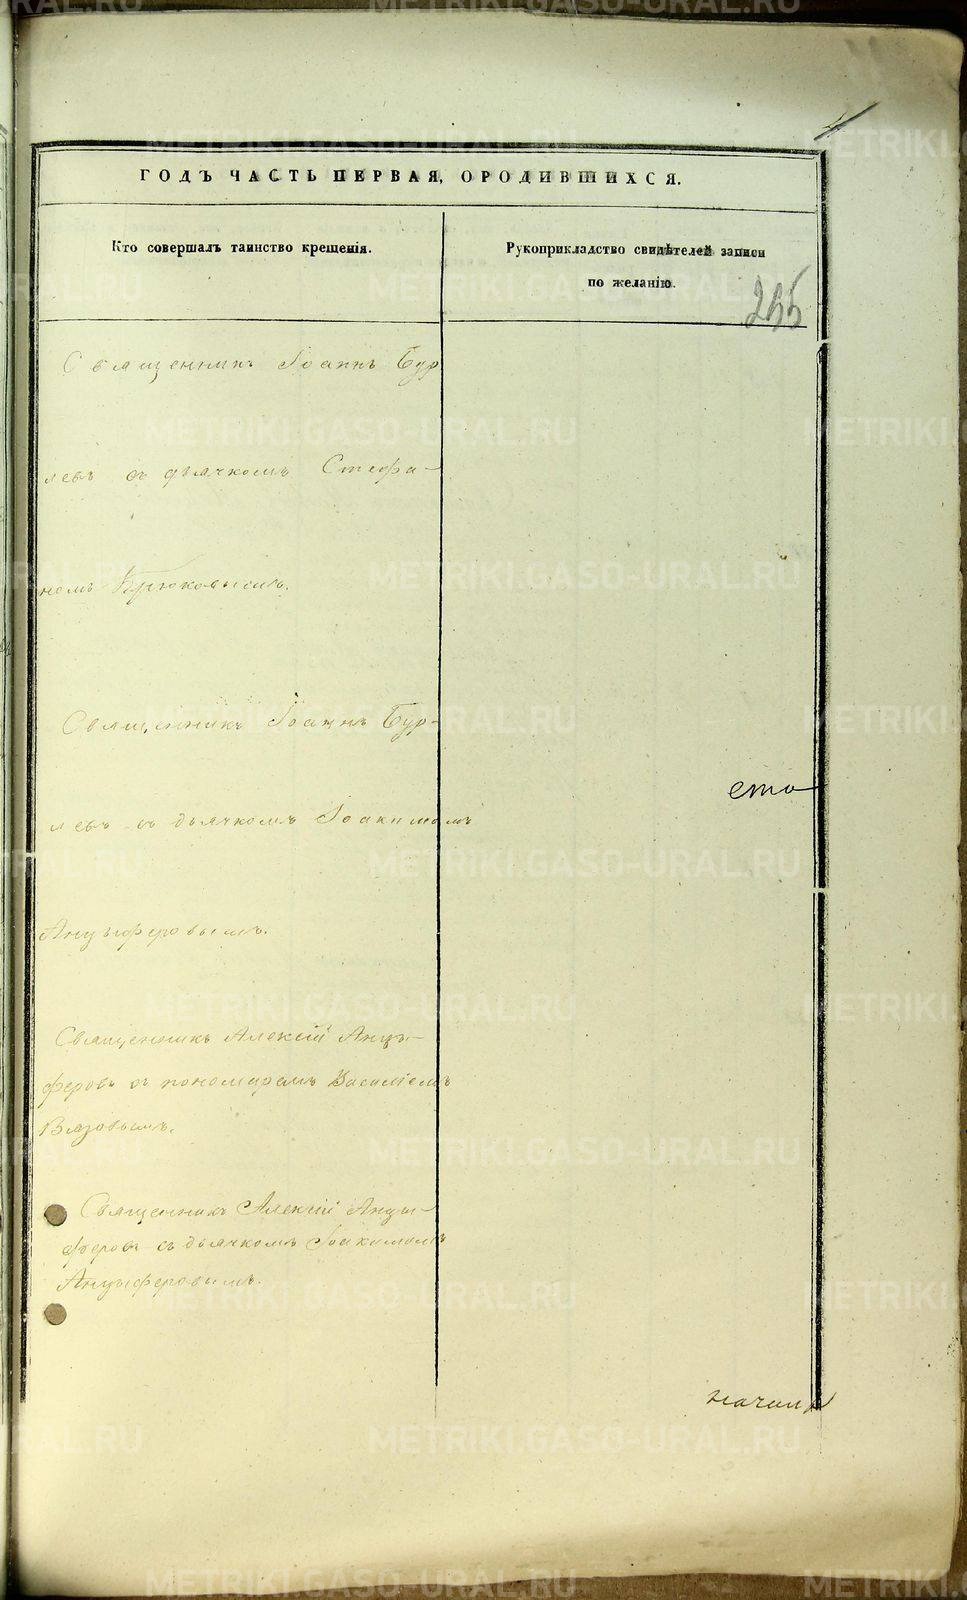 ГОДЪ ЧАСТЬ ПЕРВАЯ, ОРОДИВШИХСЯ.
Кто совершалъ таинство крещенія.
Рукоприкладство свидѣтелей записи
по желанію.
255
Священникъ Іоаннъ Бур
левъ съ дьячкомъ Стефа-
номъ Крюковымъ.
Священникъ Іоаннъ Бур-
левъ съ дьячкомъ Іоакимомъ
Анцыферовымъ.
ето
Священникъ Алексій Анцы-
феровъ съ пономаремъ Василіемъ
Вязовымъ.
Священникъ Алексій Анцы-
феровъ съ дьячкомъ Іоакимомъ
Анцыферовымъ.
METRIKI.GASO-URAL.RU